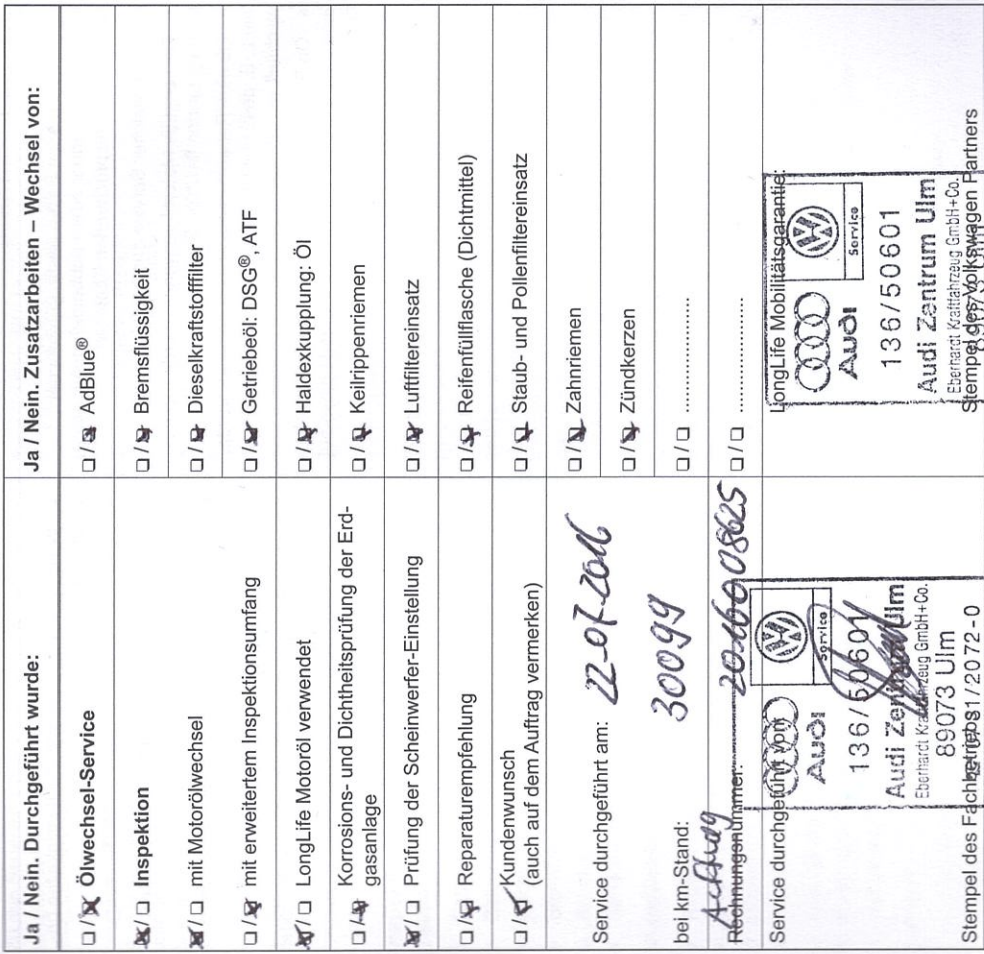 Ja / Nein. Durchgeführt wurde:
☐ / ☒ Ölwechsel-Service
☒ / ☐ Inspektion
☒ / ☐ mit Motorölwechsel
☐ / ☒ mit erweitertem Inspektionsumfang
☒ / ☐ LongLife Motoröl verwendet
☐ / ☒ Korrosions- und Dichtheitsprüfung der Erd-
gasanlage
☒ / ☐ Prüfung der Scheinwerfer-Einstellung
☐ / ☒ Reparaturempfehlung
☐ / ☒ Kundenwunsch
(auch auf dem Auftrag vermerken)
Service durchgeführt am: 22-07-2016
bei km-Stand: 30099
Auftrag
Rechnungsnummer: 2016008625
Service durchgeführt von:
Audi
Service
136/50601
Audi Zentrum Ulm
Eberhardt Kraftfahrzeug GmbH+Co.
89073 Ulm
Stempel des Fachbetriebs
0731/2072-0
Ja / Nein. Zusatzarbeiten – Wechsel von:
☐ / ☒ AdBlue®
☐ / ☒ Bremsflüssigkeit
☐ / ☒ Dieselkraftstofffilter
☐ / ☒ Getriebeöl: DSG®, ATF
☐ / ☒ Haldexkupplung: Öl
☐ / ☒ Keilrippenriemen
☐ / ☒ Luftfiltereinsatz
☐ / ☒ Reifenfüllflasche (Dichtmittel)
☐ / ☒ Staub- und Pollenfiltereinsatz
☐ / ☒ Zahnriemen
☐ / ☒ Zündkerzen
☐ / ☐ ........................
☐ / ☐ ........................
LongLife Mobilitätsgarantie:
Audi
Service
136/50601
Audi Zentrum Ulm
Eberhardt Kraftfahrzeug GmbH+Co.
89073 Ulm
Stempel des Volkswagen Partners